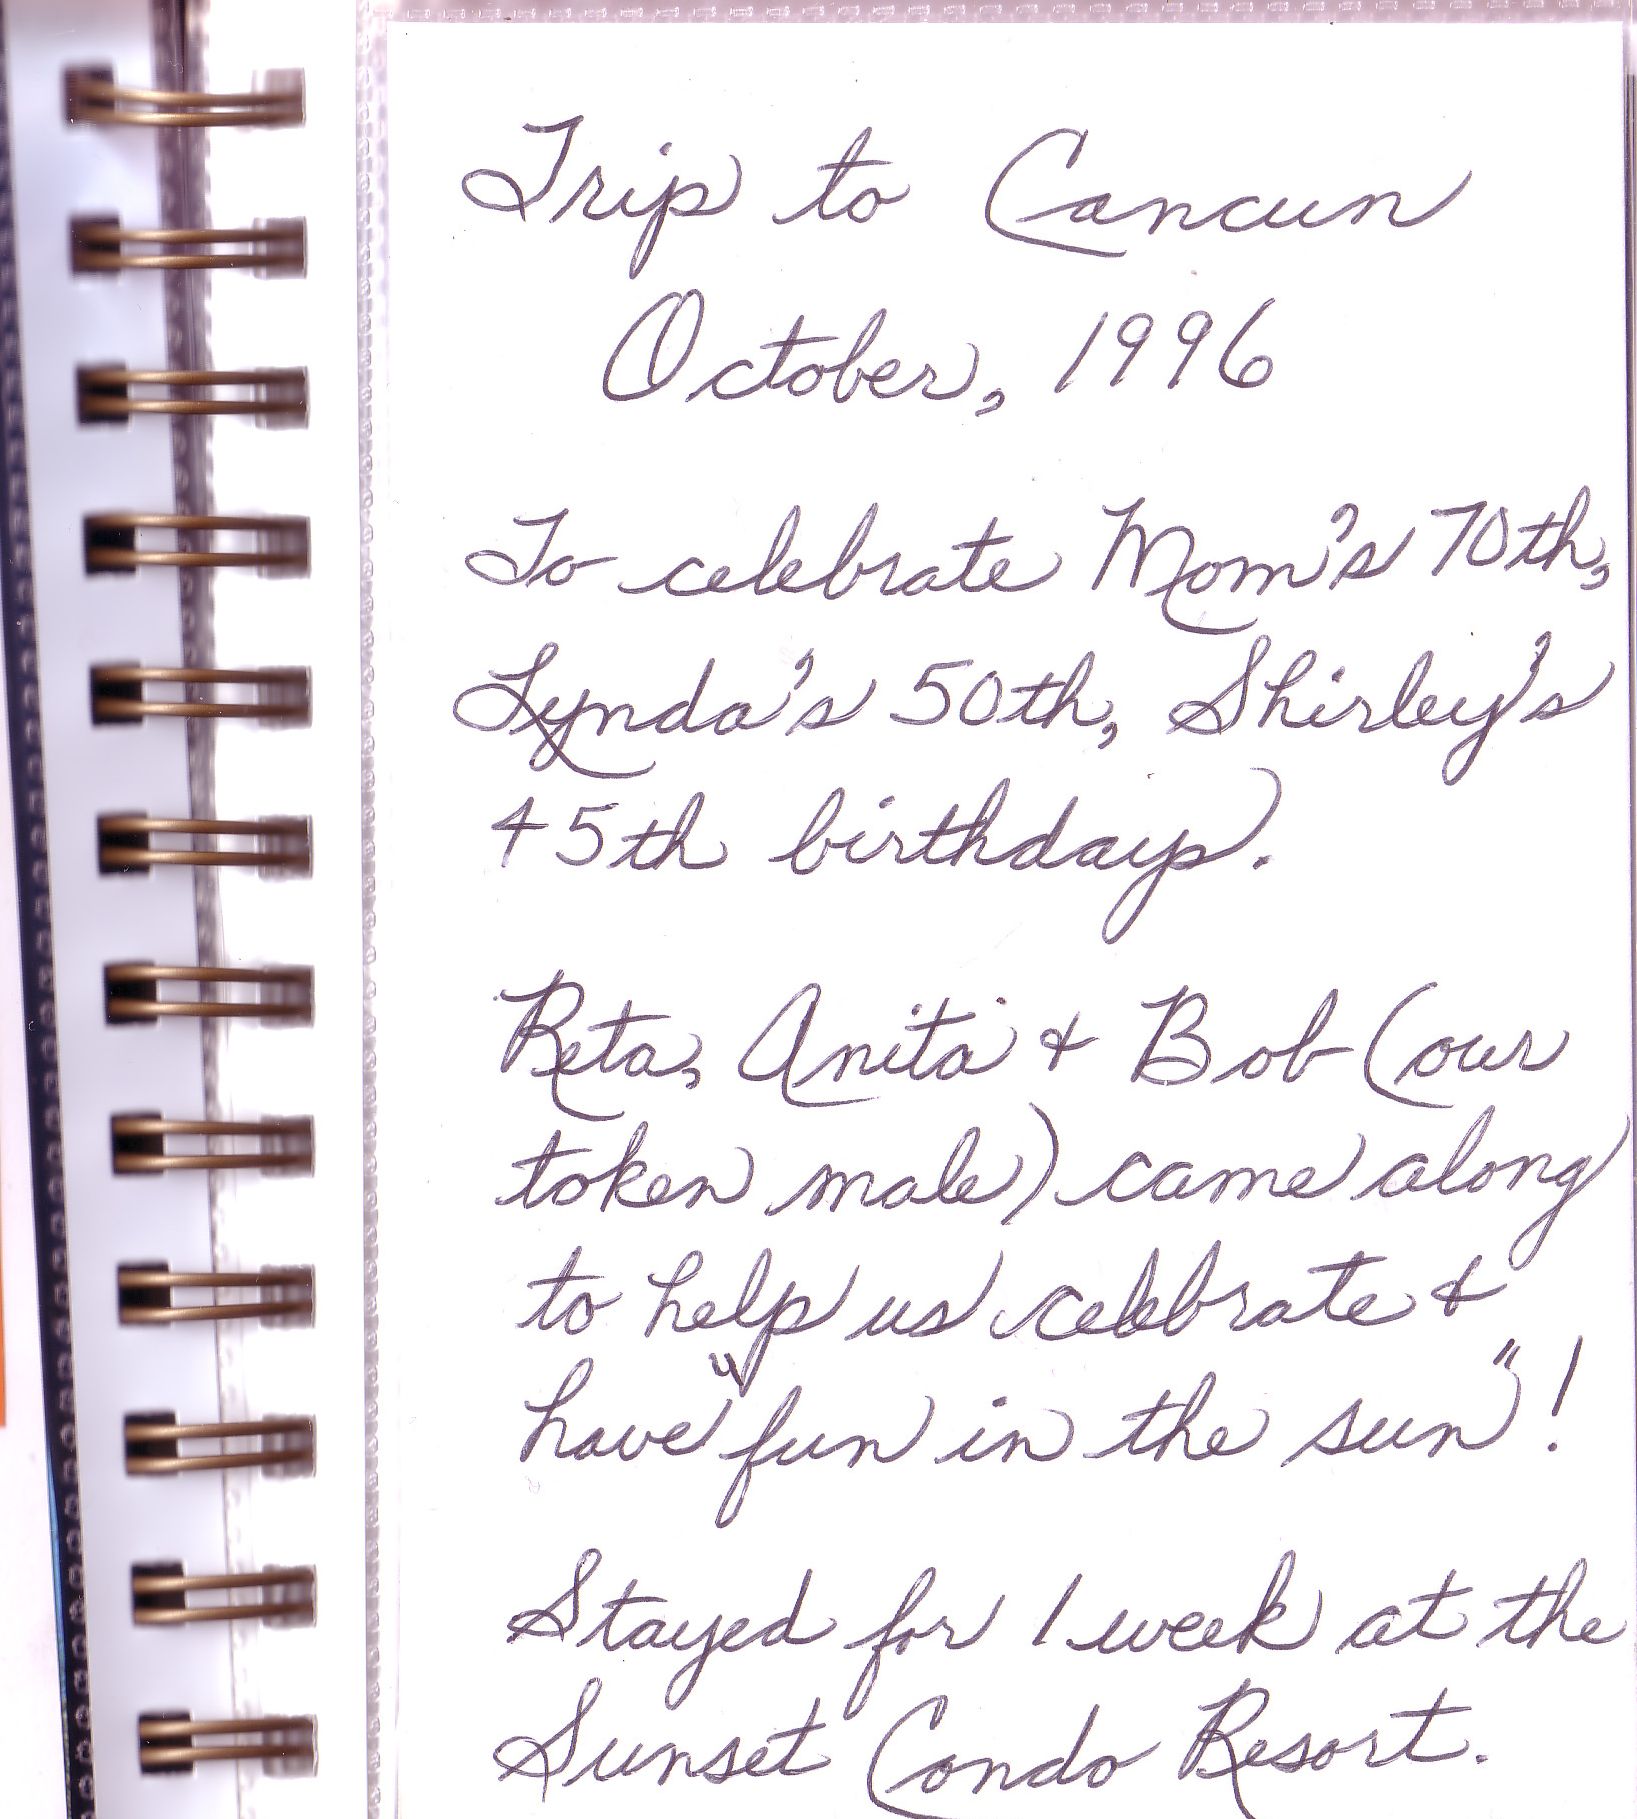 Trip to Cancun
October, 1996
To celebrate Mom's 70th,
Lynda's 50th, Shirley's
45th birthdays.
Reta, Anita & Bob (our
token male) came along
to help us celebrate &
have "fun in the sun"!
Stayed for 1 week at the
Sunset Condo Resort.